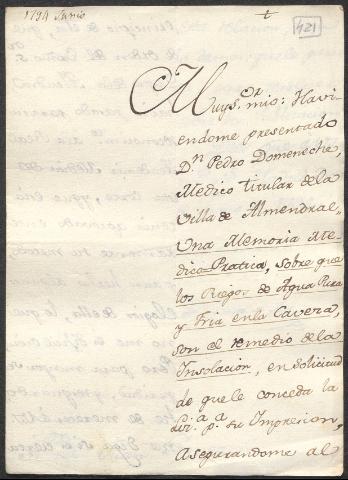 1794 Junio
421
Muy S.or mio: Havi-
endome presentado
D.n Pedro Domeneche,
Medico titular de la
Villa de Almendral
Una Memoria Me-
dico Pratica, sobre que
los Riegos de Agua Pura
y Fria en la Cavera,
son el remedio de la
Insolacion, en solicitud
de que le conceda la
Lic.a p.a su Impresion,
Asegurandome al